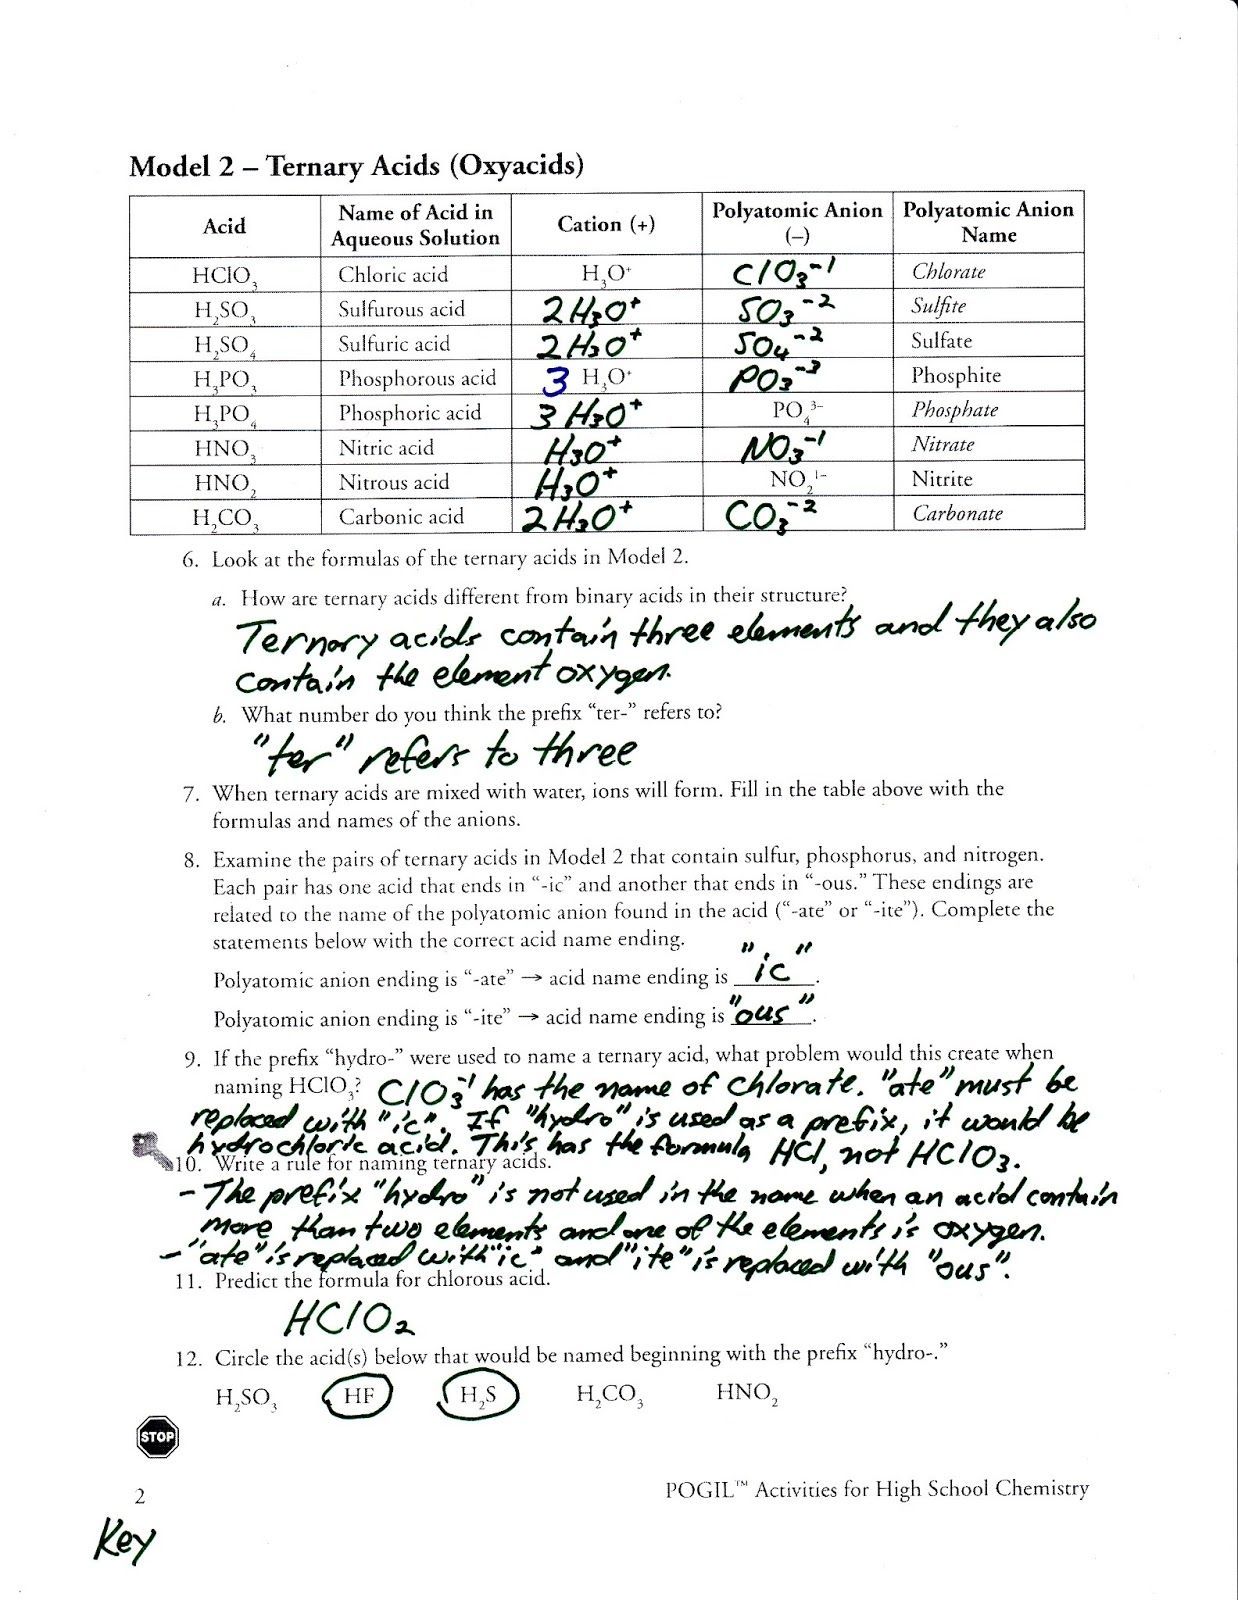 Model 2 – Ternary Acids (Oxyacids)
Acid | Name of Acid in Aqueous Solution | Cation (+) | Polyatomic Anion (–) | Polyatomic Anion Name
HClO₃ | Chloric acid | H₃O⁺ | ClO₃⁻¹ | Chlorate
H₂SO₃ | Sulfurous acid | 2H₃O⁺ | SO₃⁻² | Sulfite
H₂SO₄ | Sulfuric acid | 2H₃O⁺ | SO₄⁻² | Sulfate
H₃PO₃ | Phosphorous acid | 3 H₃O⁺ | PO₃⁻³ | Phosphite
H₃PO₄ | Phosphoric acid | 3 H₃O⁺ | PO₄³⁻ | Phosphate
HNO₃ | Nitric acid | H₃O⁺ | NO₃⁻¹ | Nitrate
HNO₂ | Nitrous acid | H₃O⁺ | NO₂¹⁻ | Nitrite
H₂CO₃ | Carbonic acid | 2H₃O⁺ | CO₃⁻² | Carbonate
6. Look at the formulas of the ternary acids in Model 2.
a. How are ternary acids different from binary acids in their structure?
Ternary acids contain three elements and they also
contain the element oxygen.
b. What number do you think the prefix “ter-” refers to?
"ter" refers to three
7. When ternary acids are mixed with water, ions will form. Fill in the table above with the
formulas and names of the anions.
8. Examine the pairs of ternary acids in Model 2 that contain sulfur, phosphorus, and nitrogen.
Each pair has one acid that ends in “-ic” and another that ends in “-ous.” These endings are
related to the name of the polyatomic anion found in the acid (“-ate” or “-ite”). Complete the
statements below with the correct acid name ending.
Polyatomic anion ending is “-ate” → acid name ending is "ic".
Polyatomic anion ending is “-ite” → acid name ending is "ous".
9. If the prefix “hydro-” were used to name a ternary acid, what problem would this create when
naming HClO₃? ClO₃⁻¹ has the name of chlorate. "ate" must be
replaced with "ic". If "hydro" is used as a prefix, it would be
hydrochloric acid. This has the formula HCl, not HClO₃.
10. Write a rule for naming ternary acids.
- The prefix "hydro" is not used in the name when an acid contain
more than two elements and one of the elements is oxygen.
- "ate" is replaced with "ic" and "ite" is replaced with "ous".
11. Predict the formula for chlorous acid.
HClO₂
12. Circle the acid(s) below that would be named beginning with the prefix “hydro-.”
H₂SO₃ HF H₂S H₂CO₃ HNO₂
STOP
2 POGIL™ Activities for High School Chemistry
Key